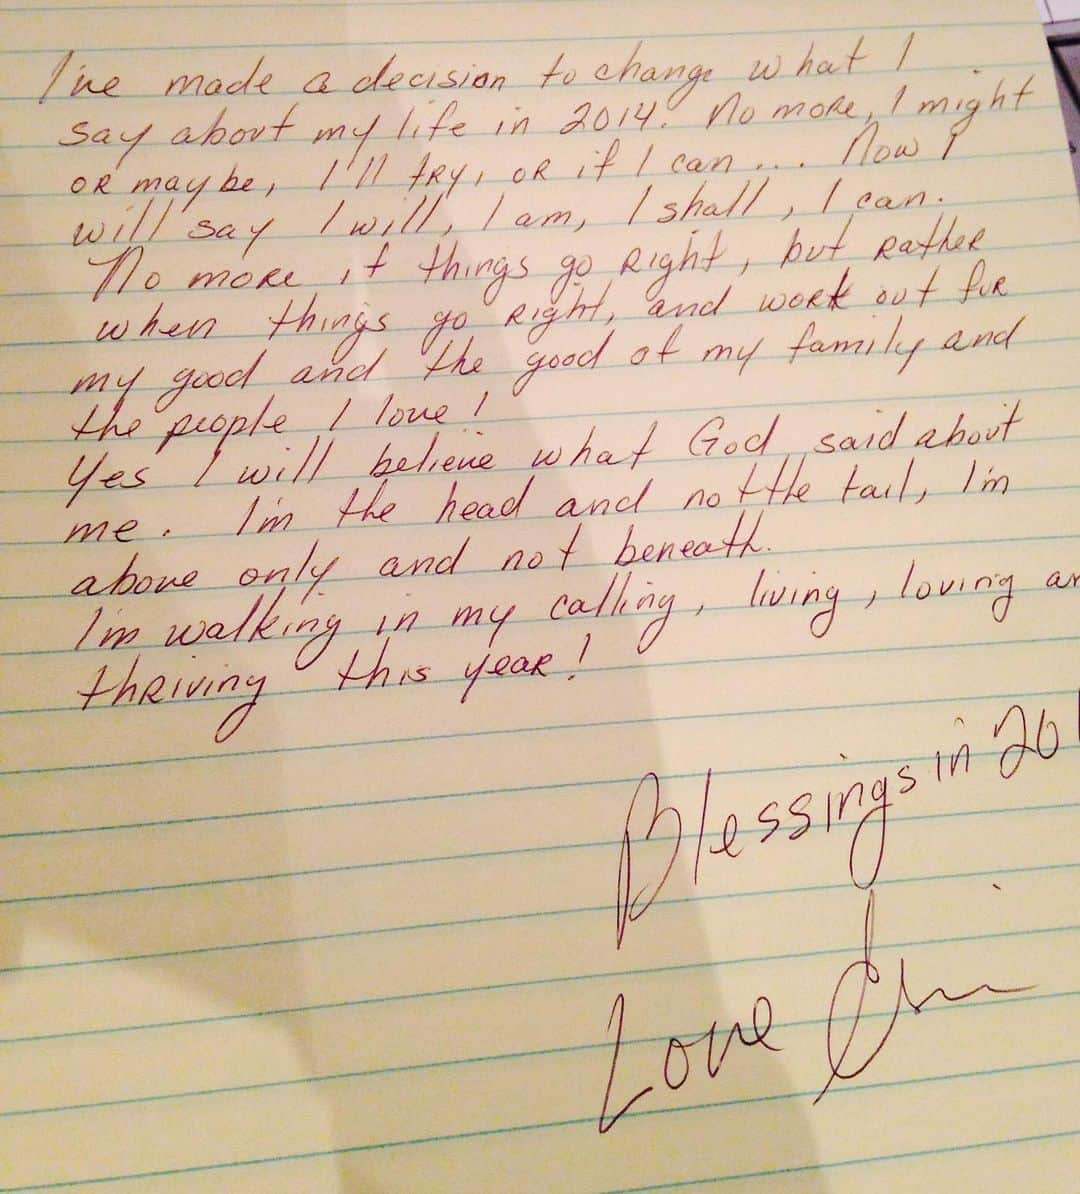 I've made a decision to change what I
say about my life in 2014. No more, I might
or maybe, I'll try, or if I can... Now I
will say I will, I am, I shall, I can.
No more if things go right, but rather
when things go right, and work out for
my good and the good of my family and
the people I love!
Yes I will believe what God said about
me. I'm the head and not the tail, I'm
above only and not beneath.
I'm walking in my calling, living, loving
thriving this year!
Blessings in 20
Love